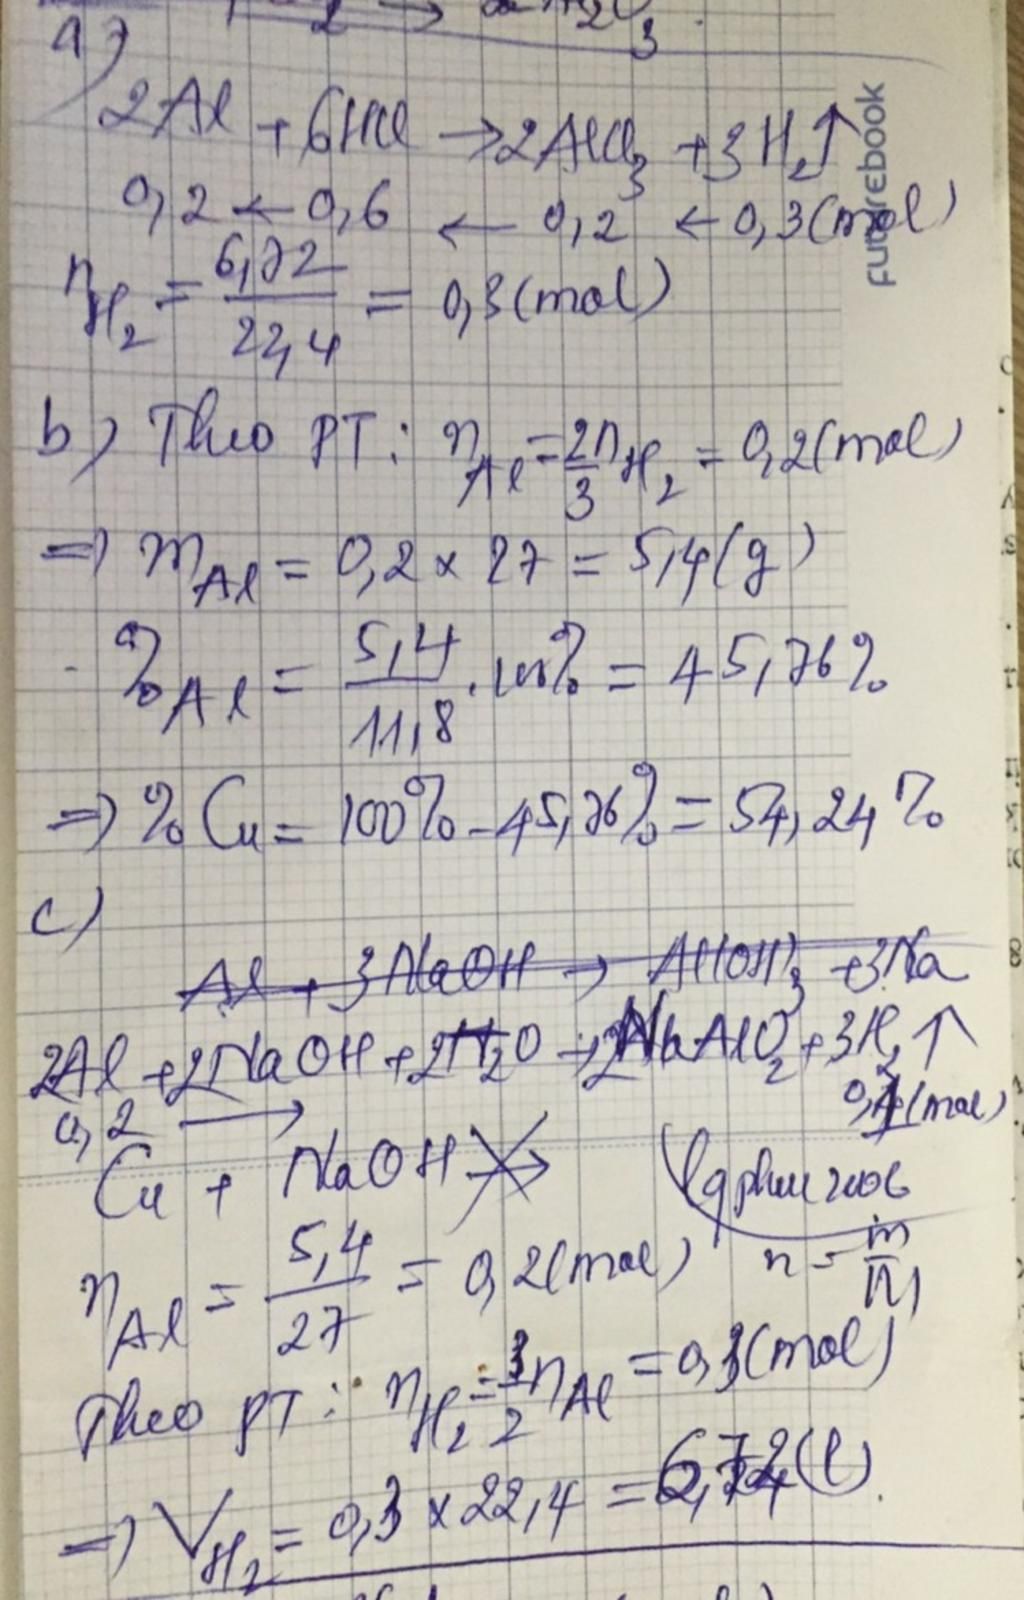 a)
2Al + 6HCl → 2AlCl3 + 3H2↑
0,2 ← 0,6 ← 0,2 ← 0,3(mol)
futurebook
nH2 = 6,72/22,4 = 0,3(mol)
b) Theo PT: nAl = 2/3 nH2 = 0,2(mol)
=> mAl = 0,2 x 27 = 5,4(g)
%Al = 5,4/11,8 . 100% = 45,76%
=> %Cu = 100% - 45,76% = 54,24%
c)
Al + 3NaOH → Al(OH)3 + 3Na
2Al + 2NaOH + 2H2O → 2NaAlO2 + 3H2↑
0,2 → (mol)
Cu + NaOH
nAl = 5,4/27 = 0,2(mol) n = m/M
Theo PT: nH2 = 3/2 nAl = 0,3(mol)
=> VH2 = 0,3 x 22,4 = 6,72(l).